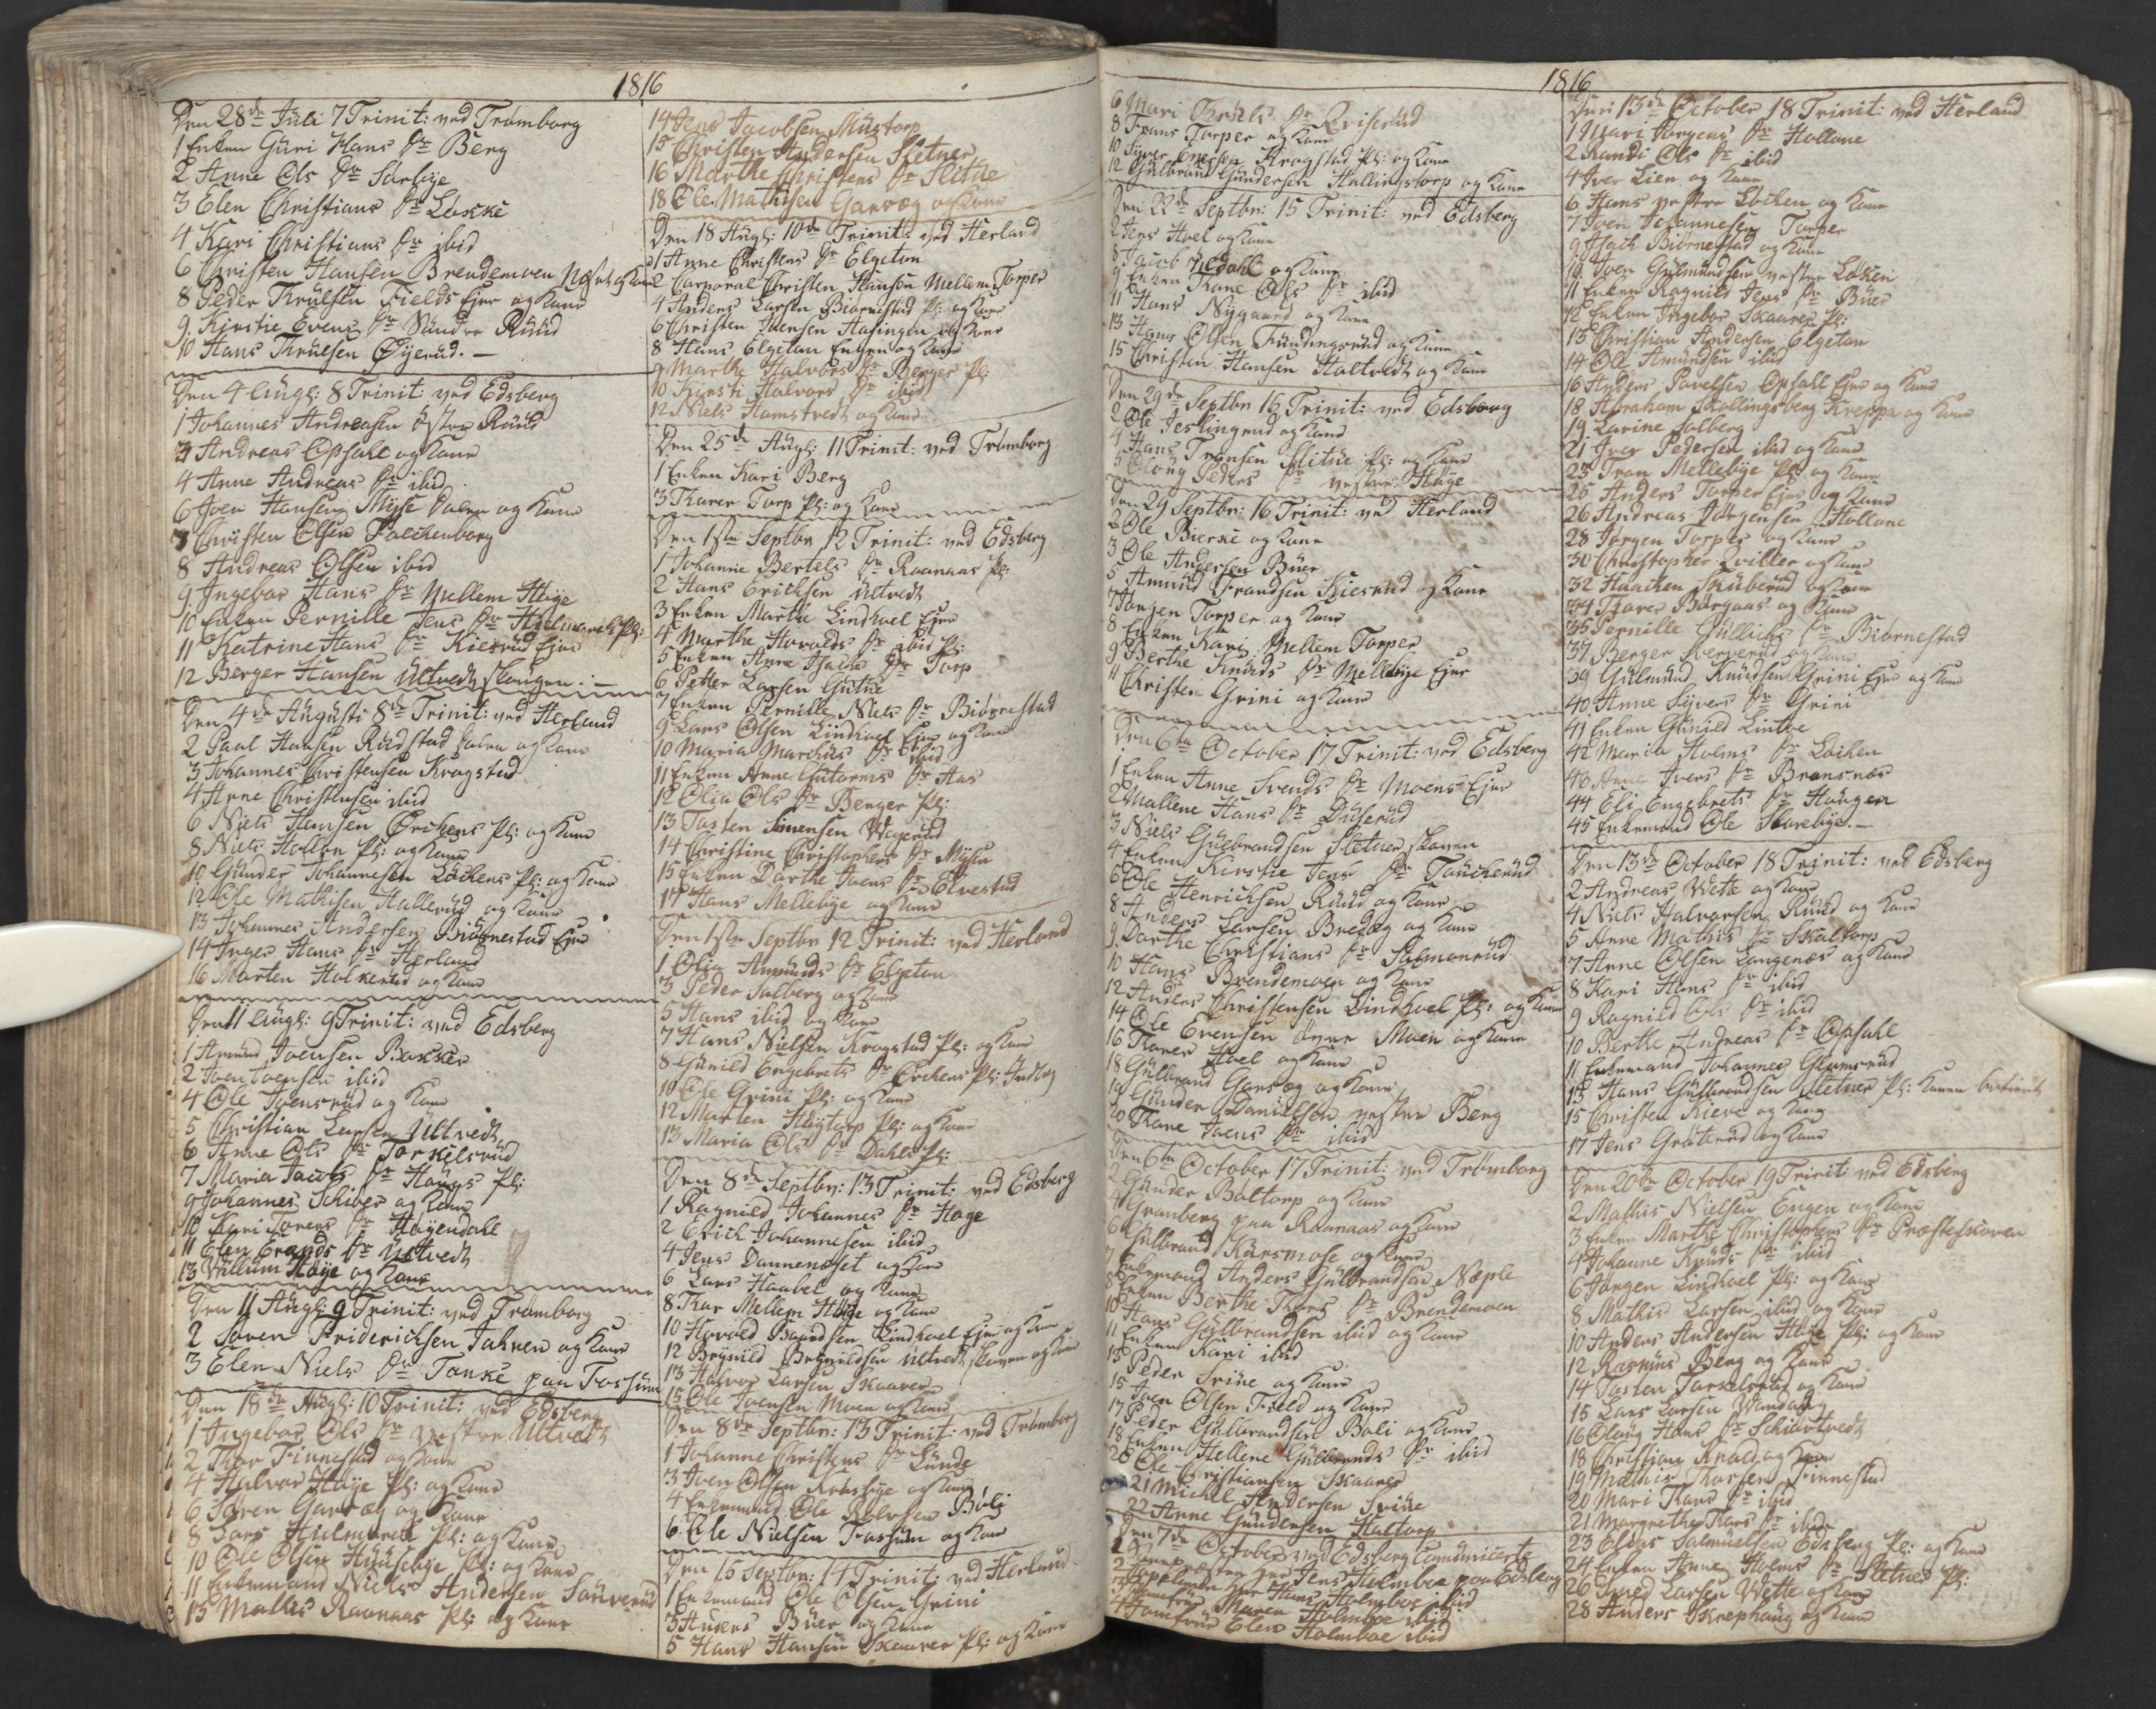 1816
Den 28de Juli 7 Trinit: ved Trømborg
1 Enken Guri Hans Dr Berg
2 Anne Ols Dr Sarbye
3 Elen Christians Dr Løkke
4 Kari Christians Dr ibid
6 Christen Hansen Brendemoen og Kone
8 Peder Thrulsen Fields Eyer og Kone
9 Kirstie Evens Dr Søndre Ruud
10 Hans Thrulsen Øyerud.
Den 4 Augs: 8 Trinit: ved Edsberg
1 Johannes Andreasen østre Ruud
3 Andreas Opsahl og Kone
4 Anne Andreas Dr ibid
6 Joen Hansen Myse og Kone
7 Christen Olsen Falckenborg
8 Andreas Olsen ibid
9 Ingebor Hans Dr Mellem Høye
10 Enken Pernille Jens Dr Hielmarck Pl:
11 Katrine Hans Dr Kiesrud Eyer
12 Berger Hansen Ultvedt skougen.
Den 4de Augusti 8de Trinit: ved Herland
2 Paul Hansen Rudstad og Kone
3 Johannes Christensen Kragstad
4 Anne Christensen ibid
6 Niels Hansen Ørckens Pl: og Kone
8 Niels Pl: og Kone
10 Gunder Johannesen Løckens Pl: og Kone
12 Ole Mathisen Hallerud og Kone
13 Johannes Andersen Biørnestad Eyer
14 Inger Hans Dr Herland
16 Morten Holkerud og Kone
Den 11 Augs: 9 Trinit: ved Edsberg
1 Amund Joensen Bakker
2 Joen Joensen ibid
4 Ole Joensrud og Kone
5 Christian Larsen Ultvedt
6 Anne Ols Dr Torkelsrud
7 Maria Jacobs Dr Haugs Pl:
9 Johannes Schiber og Kone
10 Kari Torers Dr Høyendahl
11 Elen Erands Dr Ultvedt
13 Villum Høye og Kone
Den 11 Augs: 9 Trinit: ved Trømborg
2 Søren Friderichsen Jahren og Kone
3 Elen Niels Dr Tanke paa Fossum
Den 18de Augs: 10 Trinit: ved Edsberg
1 Ingebor Ols Dr vestre Ultvedt
2 Thor Finnestad og Kone
4 Halvor Høye Pl: og Kone
6 Søren Garsæg og Kone
8 Lars Hielmarck Pl: og Kone
10 Ole Olsen Huusebye Pl: og Kone
11 Enkemand Niels Andersen
13 Mathis Raanaas Pl: og Kone
14 Jens Jacobsen Mustorp
15 Christen Andersen Sletner
16 Marthe Christens Dr Slitue
18 Ole Mathisen Garsæg og Kone
Den 18 Augs: 10de Trinit: ved Herland
1 Anne Christens Dr Elgeton
2 Corporal Christen Hansen Mellem Torper
4 Anders Larsen Biørnestad Pl: og Kone
6 Christen Joensen Aasingen og Kone
8 Hans Elgeton Engen og Kone
9 Marthe Halvors Dr Berger Pl:
10 Kirsti Halvors Dr ibid
12 Niels Hamstvedt og Kone
Den 25de Augs: 11 Trinit: ved Trømborg
1 Enken Kari Berg
3 Tharer Torp Pl: og Kone
Den 1ste Septbr 12 Trinit: ved Edsberg
1 Johanne Bertels Dr Raanaas Pl:
2 Hans Erichsen Ultvedt
3 Enken Marthe Lindhoel Eyer
4 Marthe Harolds Dr ibid Pl:
5 Enken Anne Isachs Dr Torp
6 Petter Larsen Gutue
7 Enken Pernille Niels Dr Biørnestad
9 Lars Olsen Lindhoel Eyer og Kone
10 Maria Marchus Dr ibid
11 Enken Anne Gutorms Dr Aas
12 Olia Ols Dr Berger Pl:
13 Tosten Simensen Vagerud
14 Christine Christophers Dr Mysen
15 Enken Dorthe Joens Dr Elvestad
17 Hans Mellebye og Kone
Den 1ste Septbr 12 Trinit: ved Herland
1 Olia Amunds Dr Elgeton
3 Peder Salberg og Kone
5 Hans ibid og Kone
7 Hans Nielsen Krogstad Pl: og Kone
8 Gunild Engebrets Dr Ørckens Pl:
10 Ole Grini Pl: og Kone
12 Morten Høytorp Pl: og Kone
13 Maria Ols Dr Dahls Pl:
Den 8de Septbr: 13 Trinit: ved Edsberg
1 Ragnild Johannes Dr Hage
2 Erich Johannesen ibid
4 Jens Dannemoset og Kone
6 Lars Haabel og Kone
8 Thor Mellem Høye og Kone
10 Harold Baardsen Lindhoel Eyer og Kone
12 Brynild Brynildsen Ultvedt skoven og Kone
13 Halvor Larsen Skaarer
15 Ole Joensen Moen og Kone
Den 8de Septbr: 13 Trinit: ved Trømborg
1 Johanne Christens Dr Lunde
3 Joen Olsen og Kone
4 Enkemand Ole Rolvsen Boli
6 Ole Nielsen Fossum og Kone
Den 15 Septbr: 14 Trinit: ved Herland
1 Enkemand Ole Olsen Grini
3 Anders Buer og Kone
5 Hans Hansen Skaarer Pl: og Kone
1816
6 Mari Thruls Dr Qviserud
8 Frans Torper og Kone
10 Syver Iversen Krogstad Pl: og Kone
12 Gulbrand Gundersen Hallingstorp og Kone
Den 22de Septbr: 15 Trinit: ved Edsberg
2 Jens Hoel og Kone
8 Jacob og Kone
9 Enken Thone Ols Dr ibid
11 Hans Nygaard og Kone
13 Hans Olsen Fundingsrud og Kone
15 Christen Hansen Haltvedt og Kone
Den 29de Septbr 16 Trinit: ved Edsberg
2 Ole Jeslingrud og Kone
4 Hans Tronsen Slitue Pl: og Kone
5 Olong Peders Dr vestre Høye
Den 29 Septbr: 16 Trinit: ved Herland
2 Ole Bierke og Kone
3 Ole Andersen Buer
5 Amund Frandsen Kiesrud og Kone
7 Jørgen Torper og Kone
8 Enken Kari Mellem Torper
9 Berthe Knuds Dr Mellebye Eyer
11 Christen Grini og Kone
Den 6te October 17 Trinit: ved Edsberg
1 Enken Anne Svends Dr Moens Eyer
2 Mallene Hans Dr Duserud
3 Niels Gulbrandsen Sletner skoven
4 Enken Kirstie Jens Dr Tanckerud
6 Ole Henrichsen Ruud og Kone
8 Anders Larsen Bredeg og Kone
9 Dorthe Christians Dr Salmonrud
10 Hans Brendemoen og Kone
12 Anders Christensen Lindhoel Pl: og Kone
14 Ole Evensen øvre Moen og Kone
16 Torer Hoel og Kone
18 Gulbrand Garsæg og Kone
19 Gunder Danielsen vestre Berg
20 Thone Joens Dr ibid
Den 6te October 17 Trinit: ved Trømborg
2 Gunder Boltorp og Kone
4 Granberg paa Raanaas og Kone
6 Gulbrand Kursmose og Kone
7 Enkemand Anders Gulbrandsen Næple
8 Enken Berthe Thors Dr Brendemoen
10 Hans Gulbrandsen ibid og Kone
11 Enken Kari ibid
13 Peder Triue og Kone
15 Joen Olsen Field og Kone
17 Peder Gulbrandsen Boli og Kone
18 Enken Hellene Gulbrands Dr ibid
20 Ole Christiansen Skaarer
21 Michel Andersen Triue
22 Anne Gundersen Haltorp
Den 7de October ved Edsberg Comunicerte
1 Hr Jens Holmboe paa Edsberg
2 Capelanen Hr Hans Holmboe ibid
3 Jomfrue Maren Holmboe ibid
4 Jomfrue Elen Holmboe ibid
1816
Den 13de October 18 Trinit: ved Herland
1 Mari Jørgens Dr Hollane
2 Randi Ols Dr ibid
4 Iver Lien og Kone
6 Hans vestre Løcken og Kone
7 Joen Johannesen Torper
9 Isach Biørnestad og Kone
10 Joen Gulmundsen vestre Løken
11 Enken Ragnild Jens Dr Buer
12 Enken Ingebor Skaarer Pl:
13 Christian Andersen Elgeton
14 Ole Amundsen ibid
16 Anders Povelsen Opsahl Eyer og Kone
18 Abraham Skallingsberg Kreppa og Kone
19 Lavine Solberg
21 Iver Pedersen ibid og Kone
23 Tron Mellebye Pl: og Kone
25 Anders Torper Eyer og Kone
26 Andreas Jørgensen Hollane
28 Jørgen Torper og Kone
30 Christopher Qviller og Kone
32 Haachen Skuberud og Kone
34 Thorer Børgaas og Kone
35 Pernille Gullichs Dr Biørnestad
37 Berger og Kone
39 Gulmund Knudsen Grini Eyer og Kone
40 Anne Syvers Dr Grini
41 Enken Gunild Lintoe
42 Maria Holms Dr Løcken
43 Anne Ivers Dr Bransnæs
44 Eli Engebrets Dr Haugen
45 Enkemand Ole Slorebye.
Den 13de October 18 Trinit: ved Edsberg
2 Andreas Vette og Kone
4 Niels Halvorsen Ruud og Kone
5 Anne Mathis Dr Skaltorp
7 Anne Olsen Langenæs og Kone
8 Kari Hans Dr ibid
9 Ragnild Ols Dr ibid
10 Berthe Andreas Dr Opsahl
11 Enkemand Johannes Glomsrud
13 Hans Gulbrandsen Sletner Pl: Konen
15 Christen Kiere og Kone
17 Jens Grøterud og Kone
Den 20de October 19 Trinit: ved Edsberg
2 Mathis Nielsen Engen og Kone
3 Enken Marthe Christophers Dr Præsteskoven
4 Johanne Knuds Dr ibid
6 Jørgen Lindhoel Pl: og Kone
8 Mathis Larsen ibid og Kone
10 Anders Andersen Høye Pl: og Kone
12 Rasmus Berg og Kone
14 Tosten Torkelsrud og Kone
15 Lars Larsen
16 Olaug Hans Dr Schiørtvedt
18 Christian og Kone
19 Mathis Thorsen Finnestad
20 Mari Thors Dr ibid
21 Margrethe Thors Dr ibid
23 Elias Salmuelsen Edsberg Pl: og Kone
24 Enken Anne Holms Dr Sletner Pl:
26 Larsen Vette og Kone
28 Anders Skrephaug og Kone